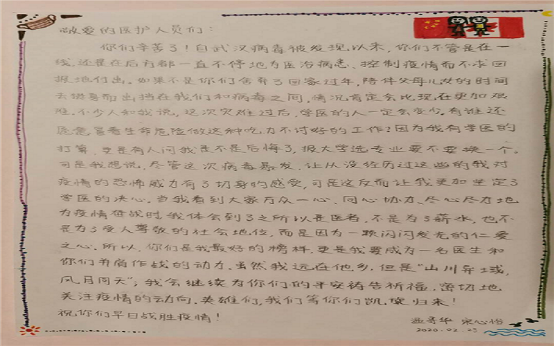 敬爱的医护人员们：
你们辛苦了！自武汉病毒被发现以来，你们不管是在一
线，还是在后方都一直不停地为医治病患，控制疫情而不求回
报地付出。如果不是你们舍弃了回家过年，陪伴父母儿女的时间
去挺身而出挡在我们和病毒之间，情况肯定会比现在更加艰
难。不少人和我说，这次灾难过后，学医的人一定会变少，有谁还
愿意冒着生命危险做这种吃力不讨好的工作？因为我有学医的
打算，更是有人问我是不是后悔了，报大学选专业要不要换一个。
可是我想说，尽管这次病毒暴发，让从没经历过这些的我对
疫情的恐怖威力有了切身的感受，可是这反而让我更加坚定了
学医的决心。当我看到大家万众一心，同心协力，尽心尽力地
为疫情奋战时，我体会到了之所以是医者，不是为了薪水，也不
是为了受人尊敬的社会地位，而是因为一颗闪闪发光的仁爱
之心。所以，你们是我最好的榜样，更是我要成为一名医生和
你们并肩作战的动力。虽然我远在他乡，但是“山川异域，
风月同天”，我会继续为你们的平安祷告祈福，密切地
关注疫情的动向。英雄们，我们等你们凯旋归来！
祝你们早日战胜疫情！
2020.02.23